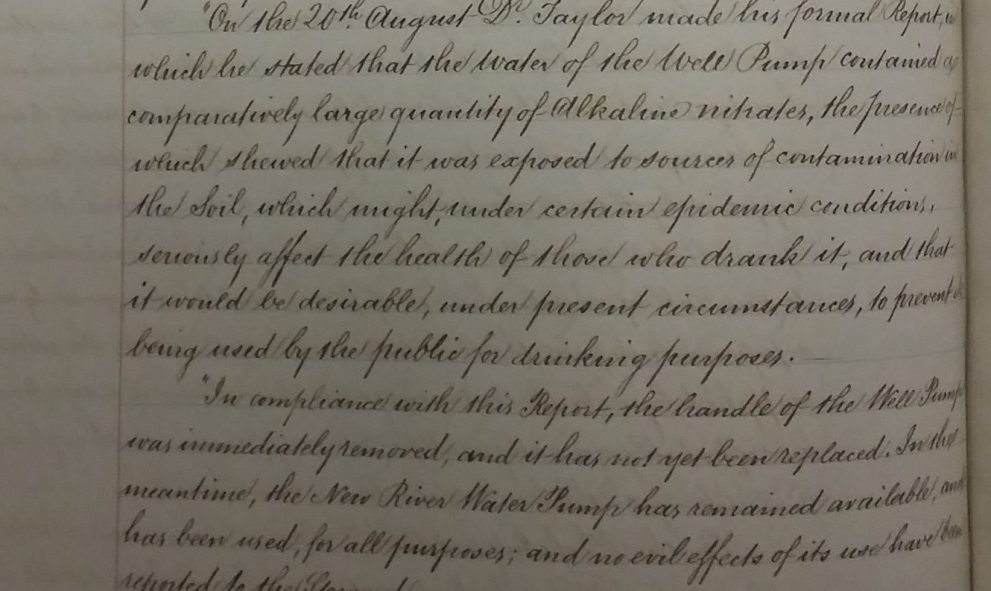 "On the 20th August Dr. Taylor made his formal Report, in
which he stated that the water of the Well Pump contained a
comparatively large quantity of Alkaline nitrates, the presence of
which shewed that it was exposed to sources of contamination in
the Soil, which might, under certain epidemic conditions,
seriously affect the health of those who drank it, and that
it would be desirable, under present circumstances, to prevent
being used by the public for drinking purposes.
"In compliance with this Report, the handle of the Well Pump
was immediately removed, and it has not yet been replaced. In the
meantime, the New River Water Pump has remained available, and
has been used, for all purposes; and no evil effects of its use have been
reported to the